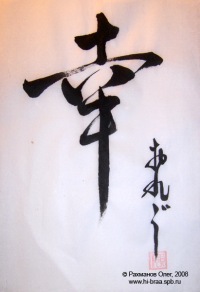 幸
おれぐ
© Рахманов Олег, 2006
www.hi-braa.spb.ru